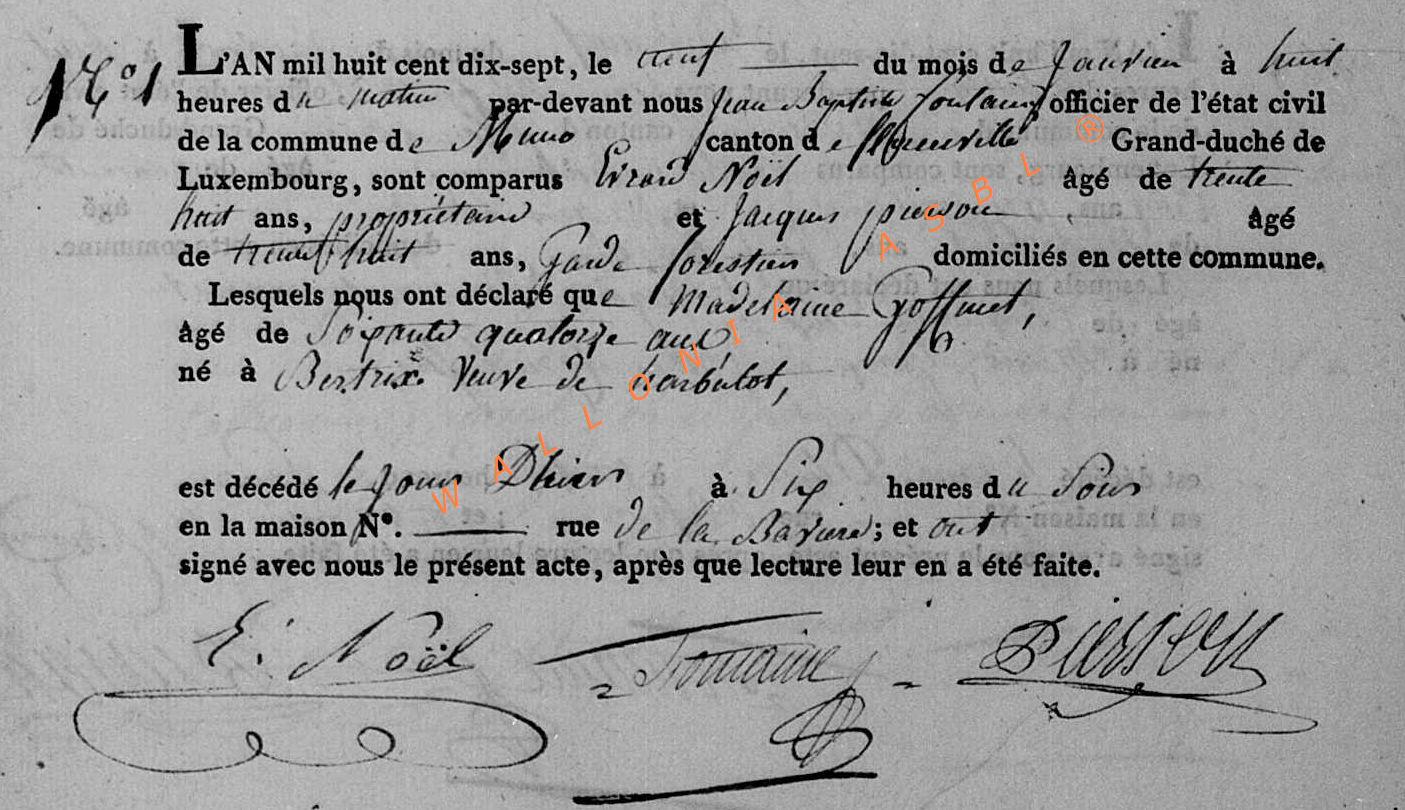 N.° 1
L'AN mil huit cent dix-sept, le neuf du mois de Janvier à huit
heures du matin par-devant nous Jean Baptiste fontaine officier de l'état civil
de la commune de Muno canton de florenville Grand-duché de
Luxembourg, sont comparus Evrard Noël âgé de trente
huit ans, propriétaire et Jacques pierson âgé
de trente huit ans, Garde forestier domiciliés en cette commune.
Lesquels nous ont déclaré que Madelaine Goffinet,
âgé de Soixante quatorze ans
né à Bertrix. Veuve de harbulot,
est décédé le jour D'hier à Six heures du Soir
en la maison N°. rue de la Baviere; et ont
signé avec nous le présent acte, après que lecture leur en a été faite.
E. Noël Fontaine Pierson
WALLONIA ASBL ®